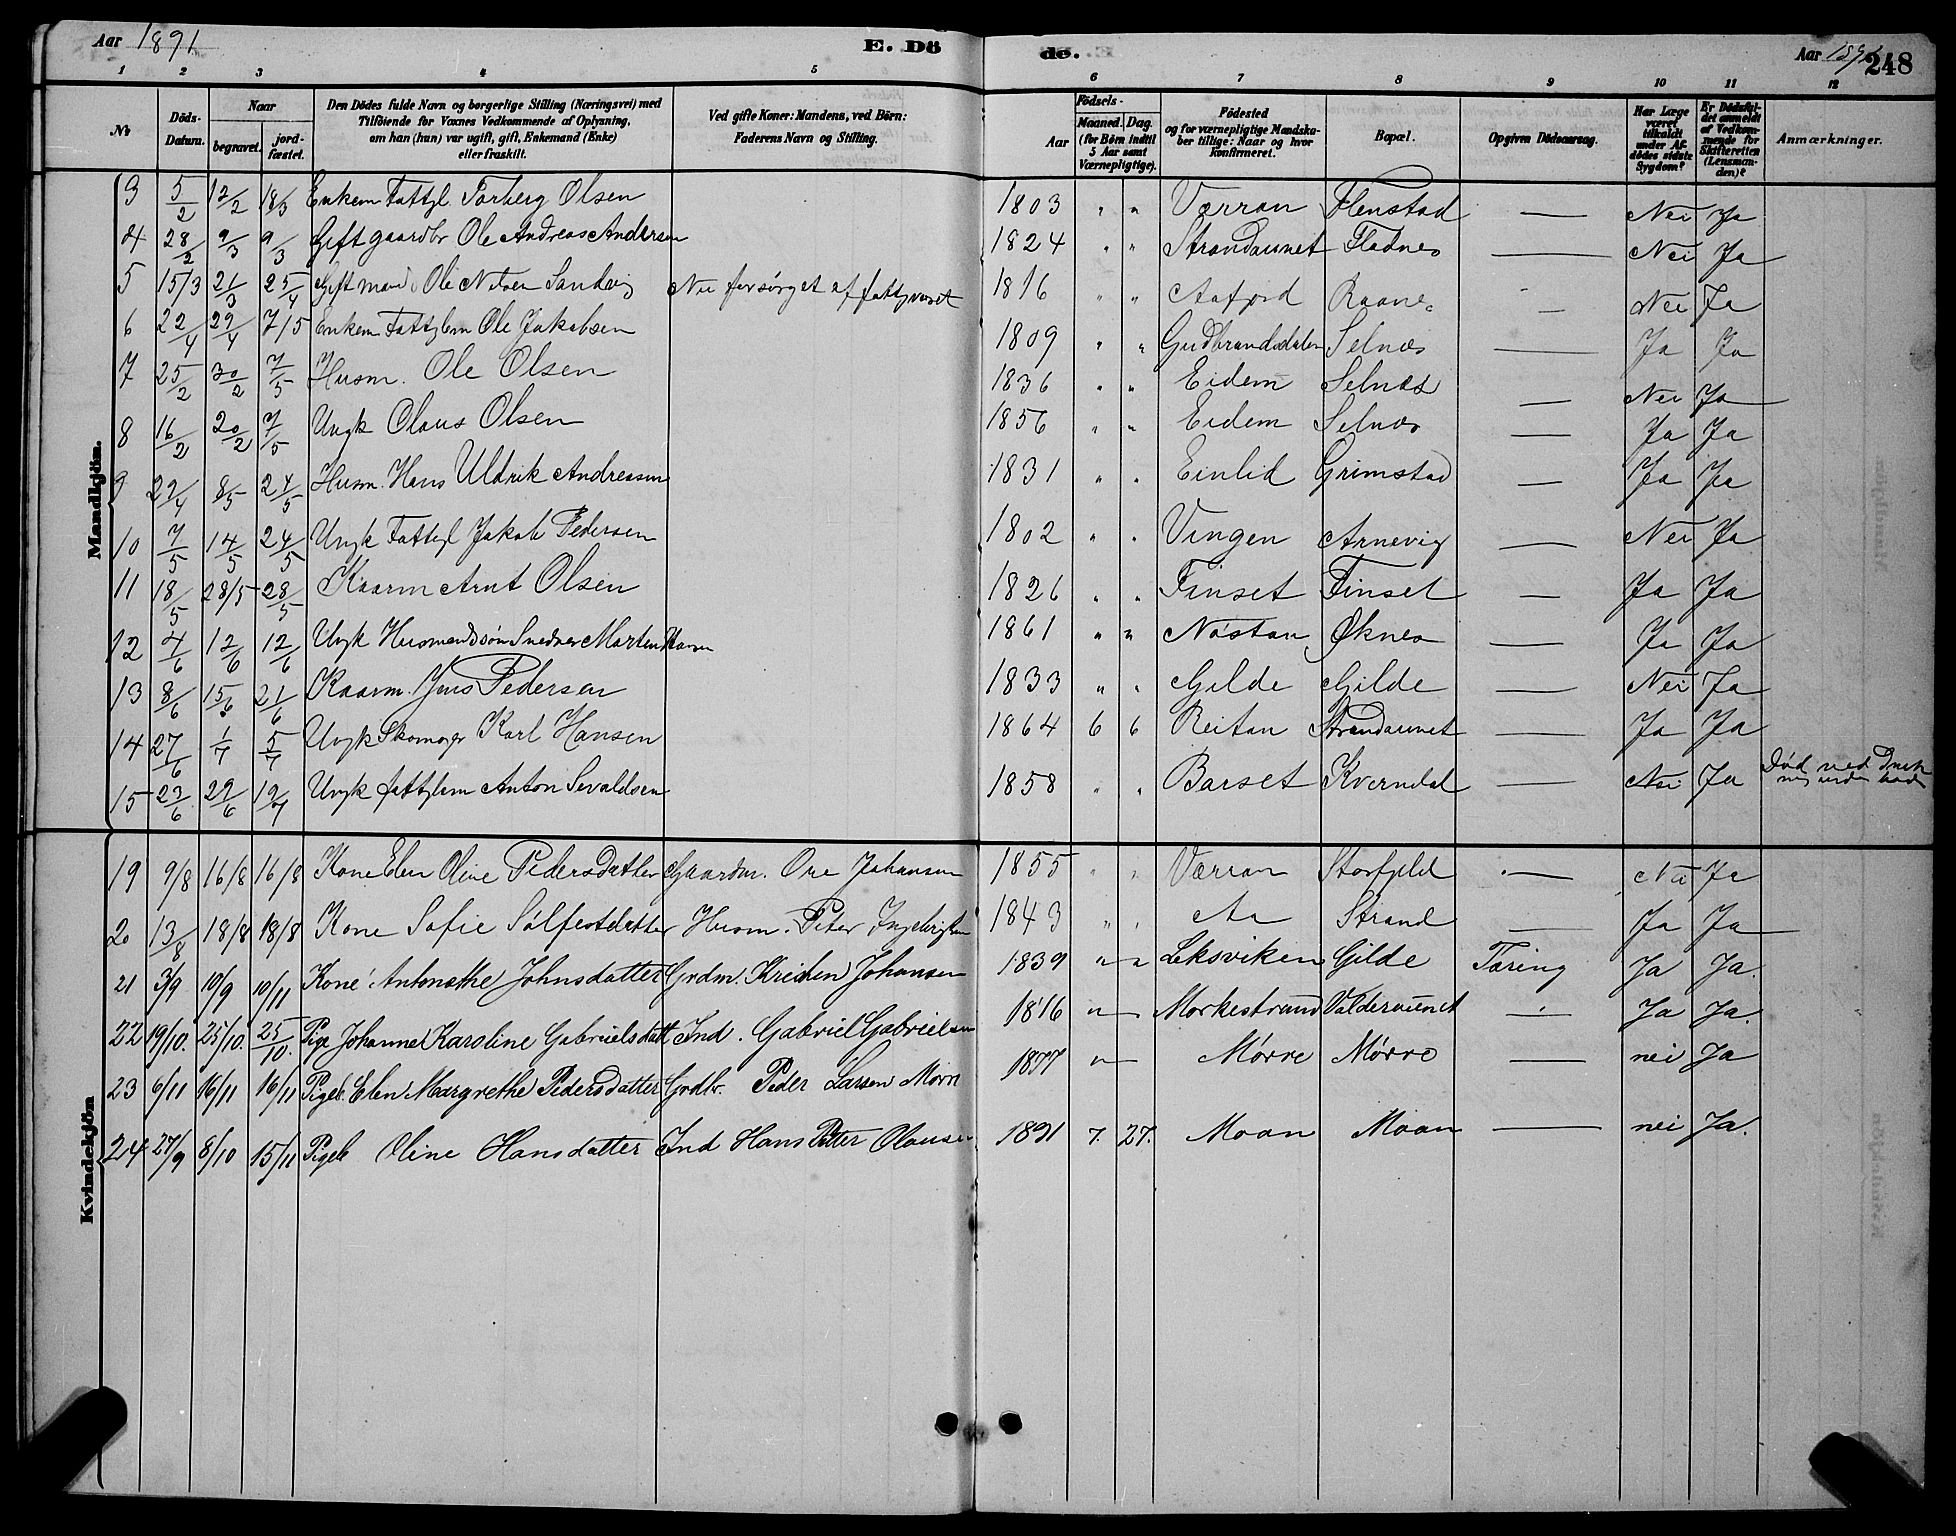 Aar 1891 E. Dö de. Aar 1891 248
1 2 3 4 5 6 7 8 9 10 11 12
No Döds-Datum. Naar begravet. jord-fæstet. Den Dödes fulde Navn og borgerlige Stilling (Næringsvei) med Tilföiende for Voxnes Vedkommende af Oplysning, om han (hun) var ugift, gift, Enkemand (Enke) eller fraskilt. Ved gifte Koner: Mandens, ved Börn: Faderens Navn og Stilling. Födsels- Aar Maaned. Dag. (for Börn indtil 5 Aar samt Værnepligtige). Födested og for værnepligtige Mandska-ber tillige: Naar og hvor konfirmeret. Bopæl. Opgiven Dödsaarsag. Har Læge været tilkaldt under Af-dödes sidste Sygdom? Er Dödsfal-det anmeldt af Vedkom-mende for Skifteretten (Lensman-den)? Anmærkninger.
Mandkjön.
3 5/2 12/2 18/3 Enkem Fattgl. Torberg Olsen 1803 " " Værran Flenstad — Nei Ja
4 28/2 9/3 9/3 Gift gaardbr Ole Andreas Andersen 1824 " " Strandaunet Fladnes Nei Ja
5 15/3 21/3 25/4 Gift mand Ole Nilsen Sandvig Nei forsörget af fattgvæset 1816 " " Aafjord Raanes — Nei Ja
6 22/4 29/4 7/5 Enkem Fattglem Ole Jakobsen 1809 " " Gudbrandsdalen Selnæs — Ja Ja
7 25/2 30/2 7/5 Husm. Ole Olsen 1836 " " Eidem Selnæs — Nei Ja
8 16/2 20/2 7/5 Ungk Olaus Olsen 1856 " " Eidem Selnæs — Ja Ja
9 29/4 8/5 24/5 Husm. Hans Uldrik Andreasen 1831 " " Einlid Grimstad — Ja Ja
10 7/5 14/5 24/5 Ungk Fattgl Jakob Pedersen 1802 " " Vingen Arnevig — Nei Ja
11 18/5 28/5 28/5 Kaarm Arnt Olsen 1826 " " Finset Finset — Ja Ja
12 4/6 12/6 12/6 Ungk Husmandssön Snedker Morten Hansen 1861 " " Nöstan Öknes — Ja Ja
13 8/6 15/6 21/6 Kaarm. Jens Pedersen 1833 " " Gilde Gilde — Nei Ja
14 27/6 1/7 5/7 Ungk Skomager Karl Hansen 1864 6 6 Reitan Strandaunet — Ja Ja
15 23/6 29/6 19/7 Ungk fattglem Anton Sevaldsen 1858 " " Barset Kverndal — Nei Ja Död ved Druk-ning under bad
Kvindekjön
19 9/8 16/8 16/8 Kone Elen Oline Pedersdatter Gaardm. Ove Johansen 1855 " " Værran Storfjeld — Nei Ja
20 13/8 18/8 18/8 Kone Sofie Sölfestdatter Husm. Peter Ingebrigtsen 1843 " " Aa Strand — Ja Ja
21 3/9 10/9 10/11 Kone Antonethe Johnsdatter Grdm. Kristen Johansen 1839 " " Leksviken Gilde Tæring Ja Ja.
22 19/10. 25/10. 25/10. Pige Johanne Karoline Gabrielsdatt Ind. Gabriel Gabrielsen 1816 " — Morkestrand Valderaunet — Ja Ja.
23 6/11 16/11 16/11 Pigeb. Elen Margrethe Pedersdatter Grdbr. Peder Larsen Mörre 1877 " — Mörre Mörre — nei Ja
24 27/9 8/10 15/11 Pigeb Oline Hansdatter Ind Hans Petter Olausen 1891 7. 27. Moan Moan — nei Ja.